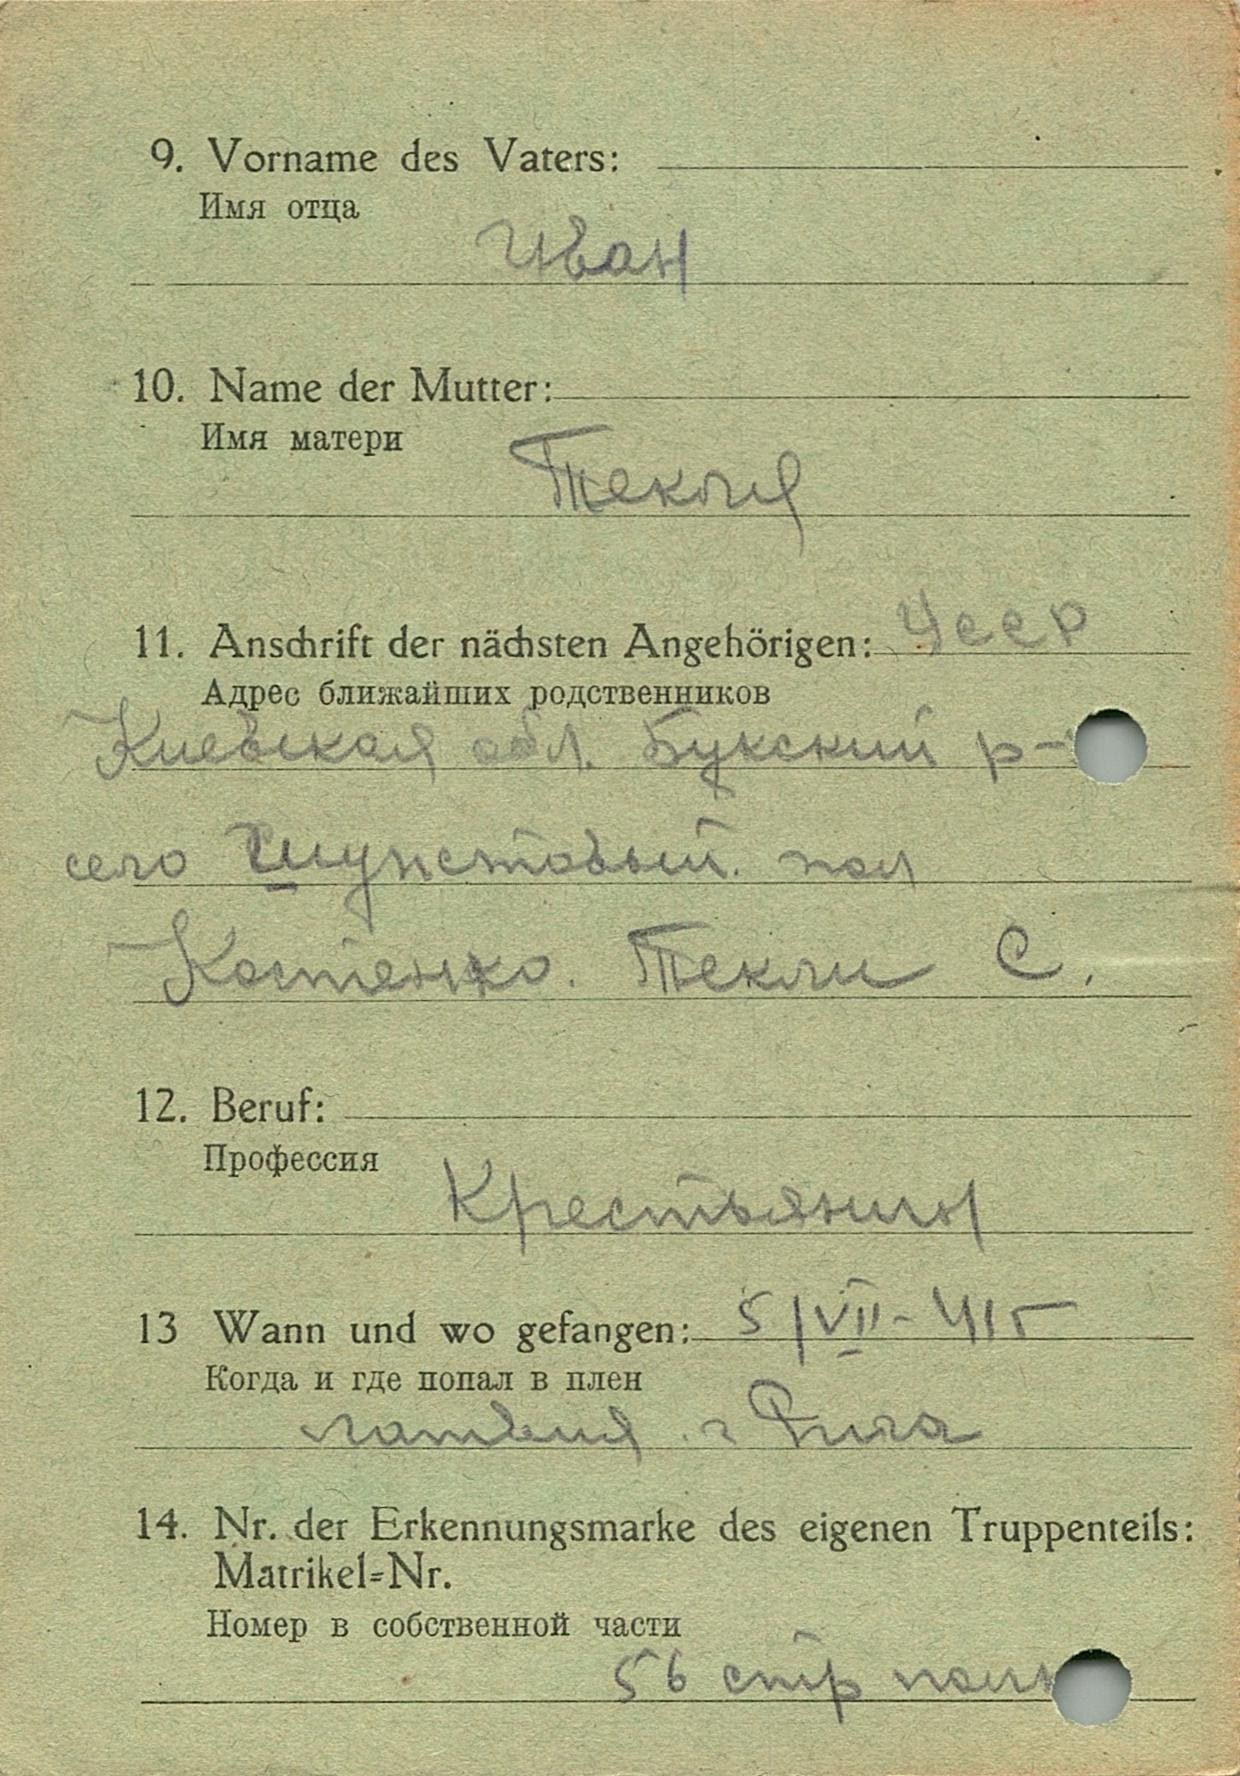 9. Vorname des Vaters:
Имя отца
Иван
10. Name der Mutter:
Имя матери
Текля
11. Anschrift der nächsten Angehörigen: Усср
Адрес ближайших родственников
Киевская обл. Букский р-
село
Костенко. Текли С.
12. Beruf:
Профессия
Крестьянин
13 Wann und wo gefangen: 5/VII-41г
Когда и где попал в плен
латвия. г Рига
14. Nr. der Erkennungsmarke des eigenen Truppenteils:
Matrikel=Nr.
Номер в собственной части
56 стр полк